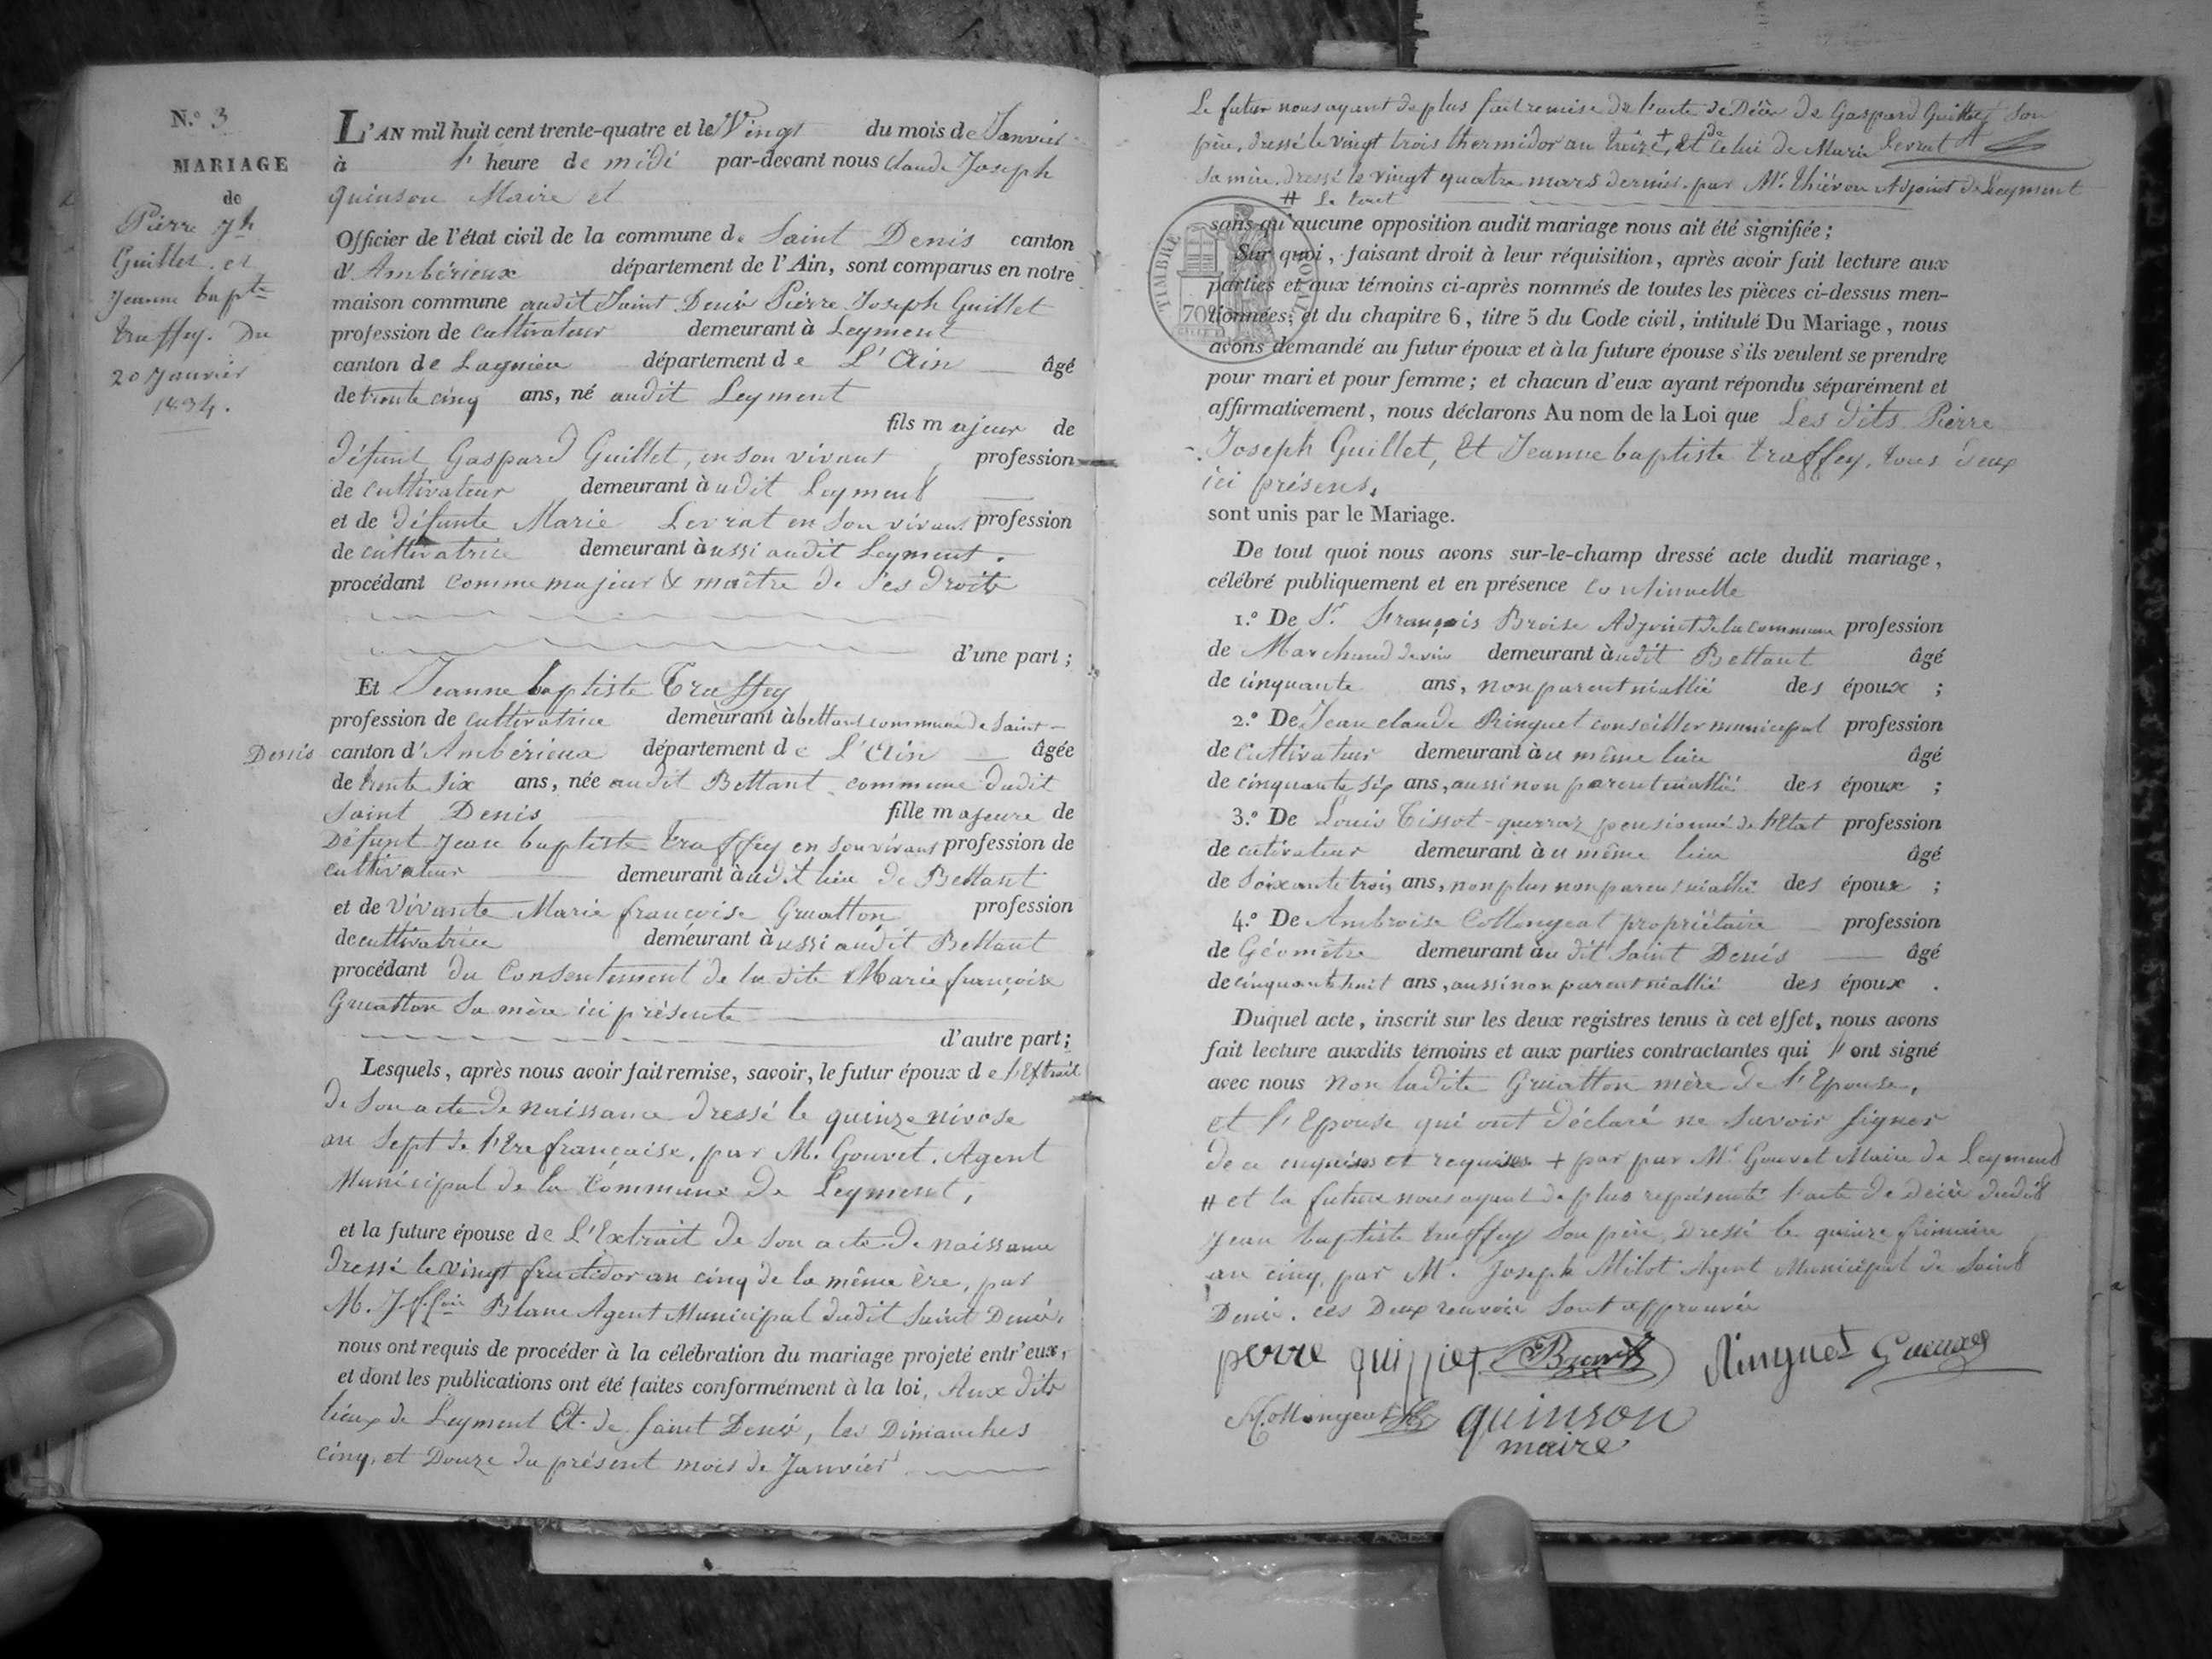 N.º 3
MARIAGE
de
Pierre Jh
Guillet et
Jeanne bapte
truffey. Du
20 Janvier
1834.
L'AN mil huit cent trente-quatre et le Vingt du mois de Janvier
à l' heure de midi par-devant nous Claude Joseph
quinson Maire et
Officier de l'état civil de la commune de Saint Denis canton
d'Ambérieux département de l'Ain, sont comparus en notre
maison commune audit Saint Denis Pierre Joseph Guillet
profession de cultivateur demeurant à Leyment
canton de Lagnieu département de L'Ain âgé
de trente cinq ans, né audit Leyment
fils majeur de
défunt Gaspard Guillet, en son vivant, profession
de cultivateur demeurant audit Leyment
et de défunte Marie Levrat en son vivant profession
de cultivatrice demeurant aussi audit Leyment.
procédant comme majeur & maître de ses droits
d'une part ;
Et Jeanne baptiste Truffey
profession de cultivatrice demeurant à bettant commune de Saint-
Denis canton d'Ambérieux département de L'Ain âgée
de trente six ans, née audit Bettant commune dudit
Saint Denis fille majeure de
Défunt Jean baptiste truffey en son vivant profession de
cultivateur demeurant audit lieu de Bettant
et de Vivante Marie françoise Gruatton profession
de cultivatrice demeurant aussi audit Bettant
procédant du Consentement de la dite Marie françoise
Gruatton Sa mère ici présente
d'autre part ;
Lesquels, après nous avoir fait remise, savoir, le futur époux de l'Extrait
de Son acte de naissance dressé le quinze nivose
an Sept de l'Ere française, par M. Gouvet, Agent
Municipal de la Commune de Leyment,
et la future épouse de L'Extrait de Son acte de naissance
dressé le vingt fructidor an cinq de la même ère, par
M. Blanc Agent Municipal dudit Saint Denis,
nous ont requis de procéder à la célébration du mariage projeté entr'eux,
et dont les publications ont été faites conformément à la loi, Aux dits
lieux de Leyment Et de Saint Denis, les Dimanches
cinq, et Douze du présent mois de Janvier
Le futur nous ayant de plus fait remise de l'acte de Décès de Gaspard Guillet Son
père, dressé le vingt trois thermidor an treize + et de celui de Marie Levrat #
Sa mère, dressé le vingt quatre mars dernier par Mr. thiévon Adjoint de Leyment
# Le tout
sans qu'aucune opposition audit mariage nous ait été signifiée ;
TIMBRE ROYAL
70c
Sur quoi, faisant droit à leur réquisition, après avoir fait lecture aux
parties et aux témoins ci-après nommés de toutes les pièces ci-dessus men-
tionnées; et du chapitre 6, titre 5 du Code civil, intitulé Du Mariage, nous
avons demandé au futur époux et à la future épouse s'ils veulent se prendre
pour mari et pour femme; et chacun d'eux ayant répondu séparément et
affirmativement, nous déclarons Au nom de la Loi que Les dits Pierre
Joseph Guillet, Et Jeanne baptiste truffey, tous deux
ici présens,
sont unis par le Mariage.
De tout quoi nous avons sur-le-champ dressé acte dudit mariage,
célébré publiquement et en présence continuelle
1.º De Sr. François Broise Adjoint de la commune profession
de Marchand de vin demeurant audit Bettant âgé
de cinquante ans, non parent ni allié des époux ;
2.º De Jean claude Ringuet conseiller municipal profession
de cultivateur demeurant au même lieu âgé
de cinquante six ans, aussi non parent ni allié des époux ;
3.º De Louis Tissot-guerraz pensionné de l'Etat profession
de cutivateur demeurant au même lieu âgé
de Soixante trois ans, non plus non parent ni allié des époux ;
4.º De Ambroise Collongeat propriétaire profession
de Géomètre demeurant au dit Saint Denis âgé
de cinquante huit ans, aussi non parent ni allié des époux .
Duquel acte, inscrit sur les deux registres tenus à cet effet, nous avons
fait lecture auxdits témoins et aux parties contractantes qui ont signé
avec nous Non ladite Gruatton mère de l'Epouse,
et l'Epouse qui ont déclaré ne Savoir Signer
de ce enquises et requises + par par Mr. Gouvet Maire de Leyment
# et la future nous ayant de plus représenté l'acte de décès dudit
Jean baptiste truffey Son père, dressé le quinze frimaire
an cinq, par Mr. Joseph Milot Agent Municipal de Saint
Denis. ces Deux renvois Sont approuvés
Ringuet Guerraz
Collongeat quinson
maire